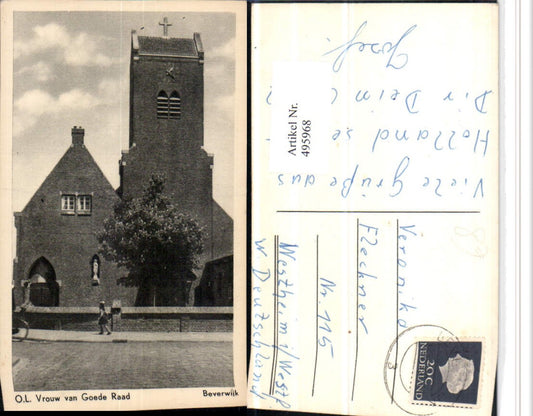 O.L. Vrouw van Goede Raad
Beverwijk
Artikel Nr.
495968
Viele Grüße aus
Holland se
Dir Dein
Josef
Veronika
Fleckner
Nr. 115
Westheim i/Westf
W Deutschland
20c
NEDERLAND